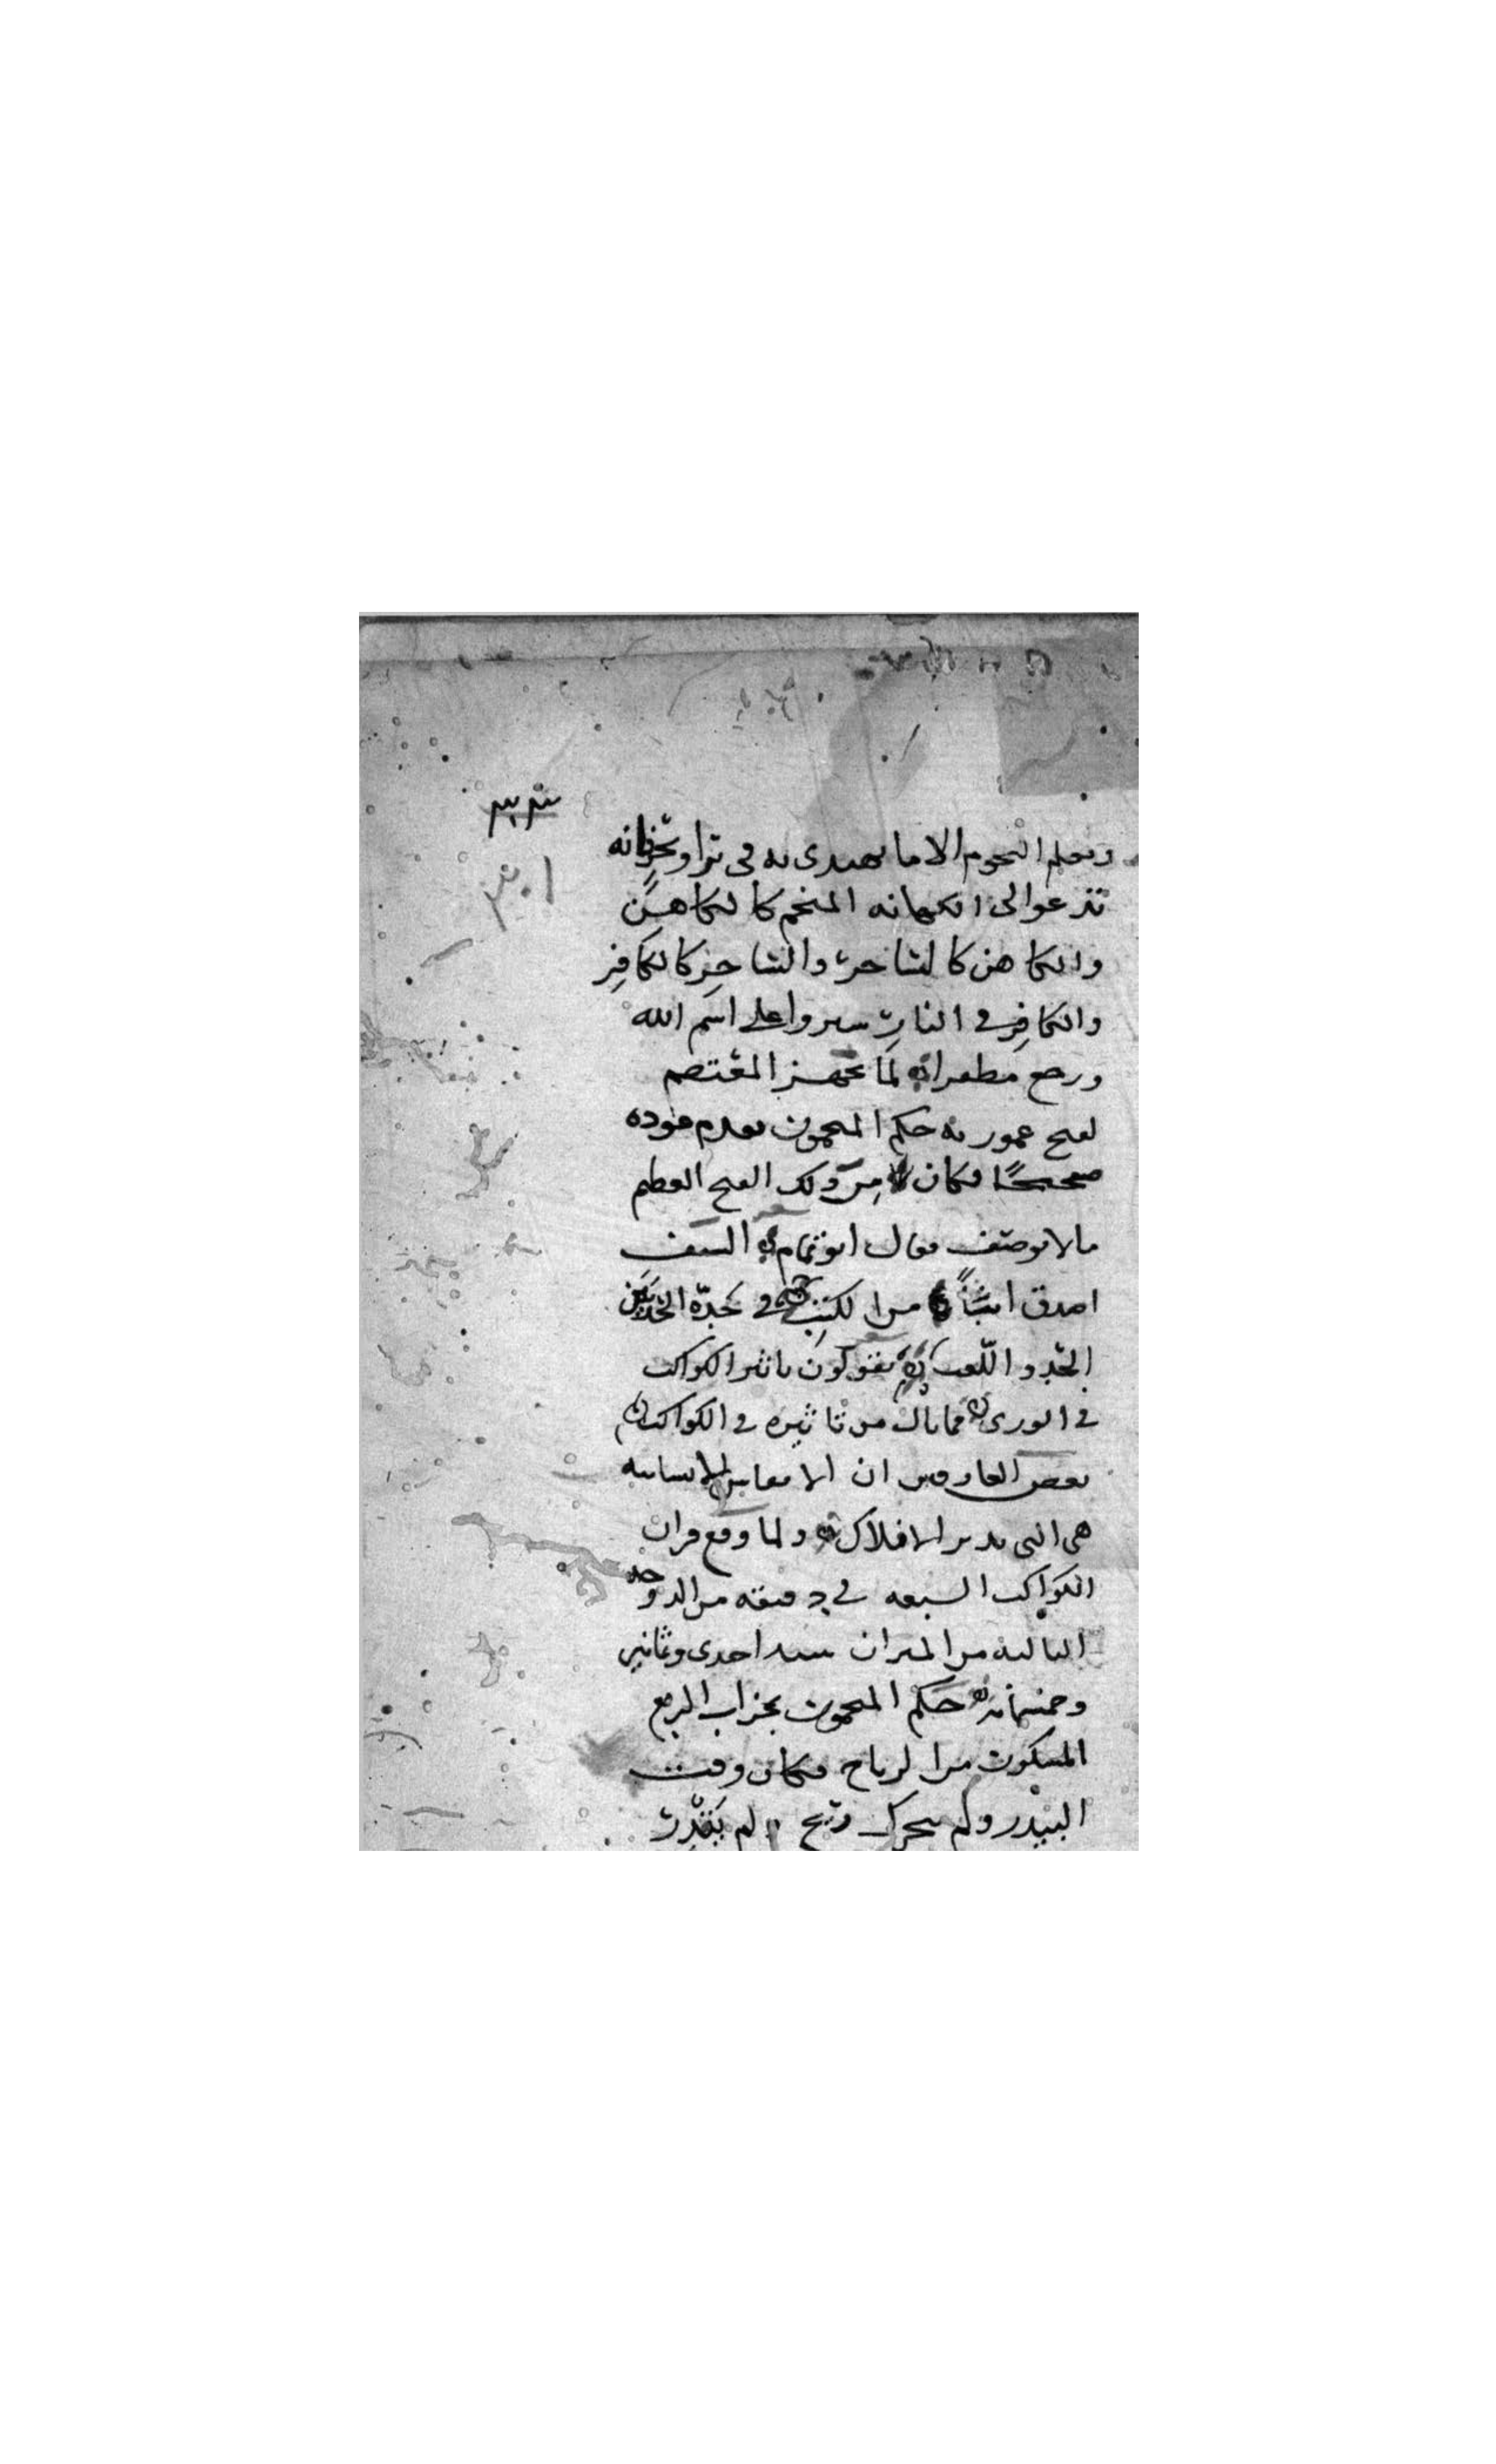 ٣٠٣
٣٠١
وتعلم النجوم الا ما يهتدى به فى بر او بحر فانه
تدعوا الى الكهانه المنجم كالكاهن
والكاهن كالساحر والساحر كالكافر
والكافر فى النار سيروا على اسم الله
ورجع مظفرا لما تجهز المعتصم
لفتح عموريه حكم المنجمون بعدم عوده
صحيحًا فكان من ذلك الفتح العظيم
ما لا يوصف فقال ابو تمام السيف
اصدق انباءً من الكتب فى حده الحد بين
الجد واللعب يقولون تاثير الكواكب
فى الورى فما بال من تاثيره فى الكواكب
بعض العارفين ان الانفاس الانسانيه
هى التى تدير الافلاك ولما وقع قران
الكواكب السبعه فى دقيقه من الدرجه
الثالثه من الميزان سنه احدى وثمانين
وخمسمائه حكم المنجمون بخراب الربع
المسكون من الرياح فكان وقت
البيدر ولم يتحرك ريح ولم يقدر